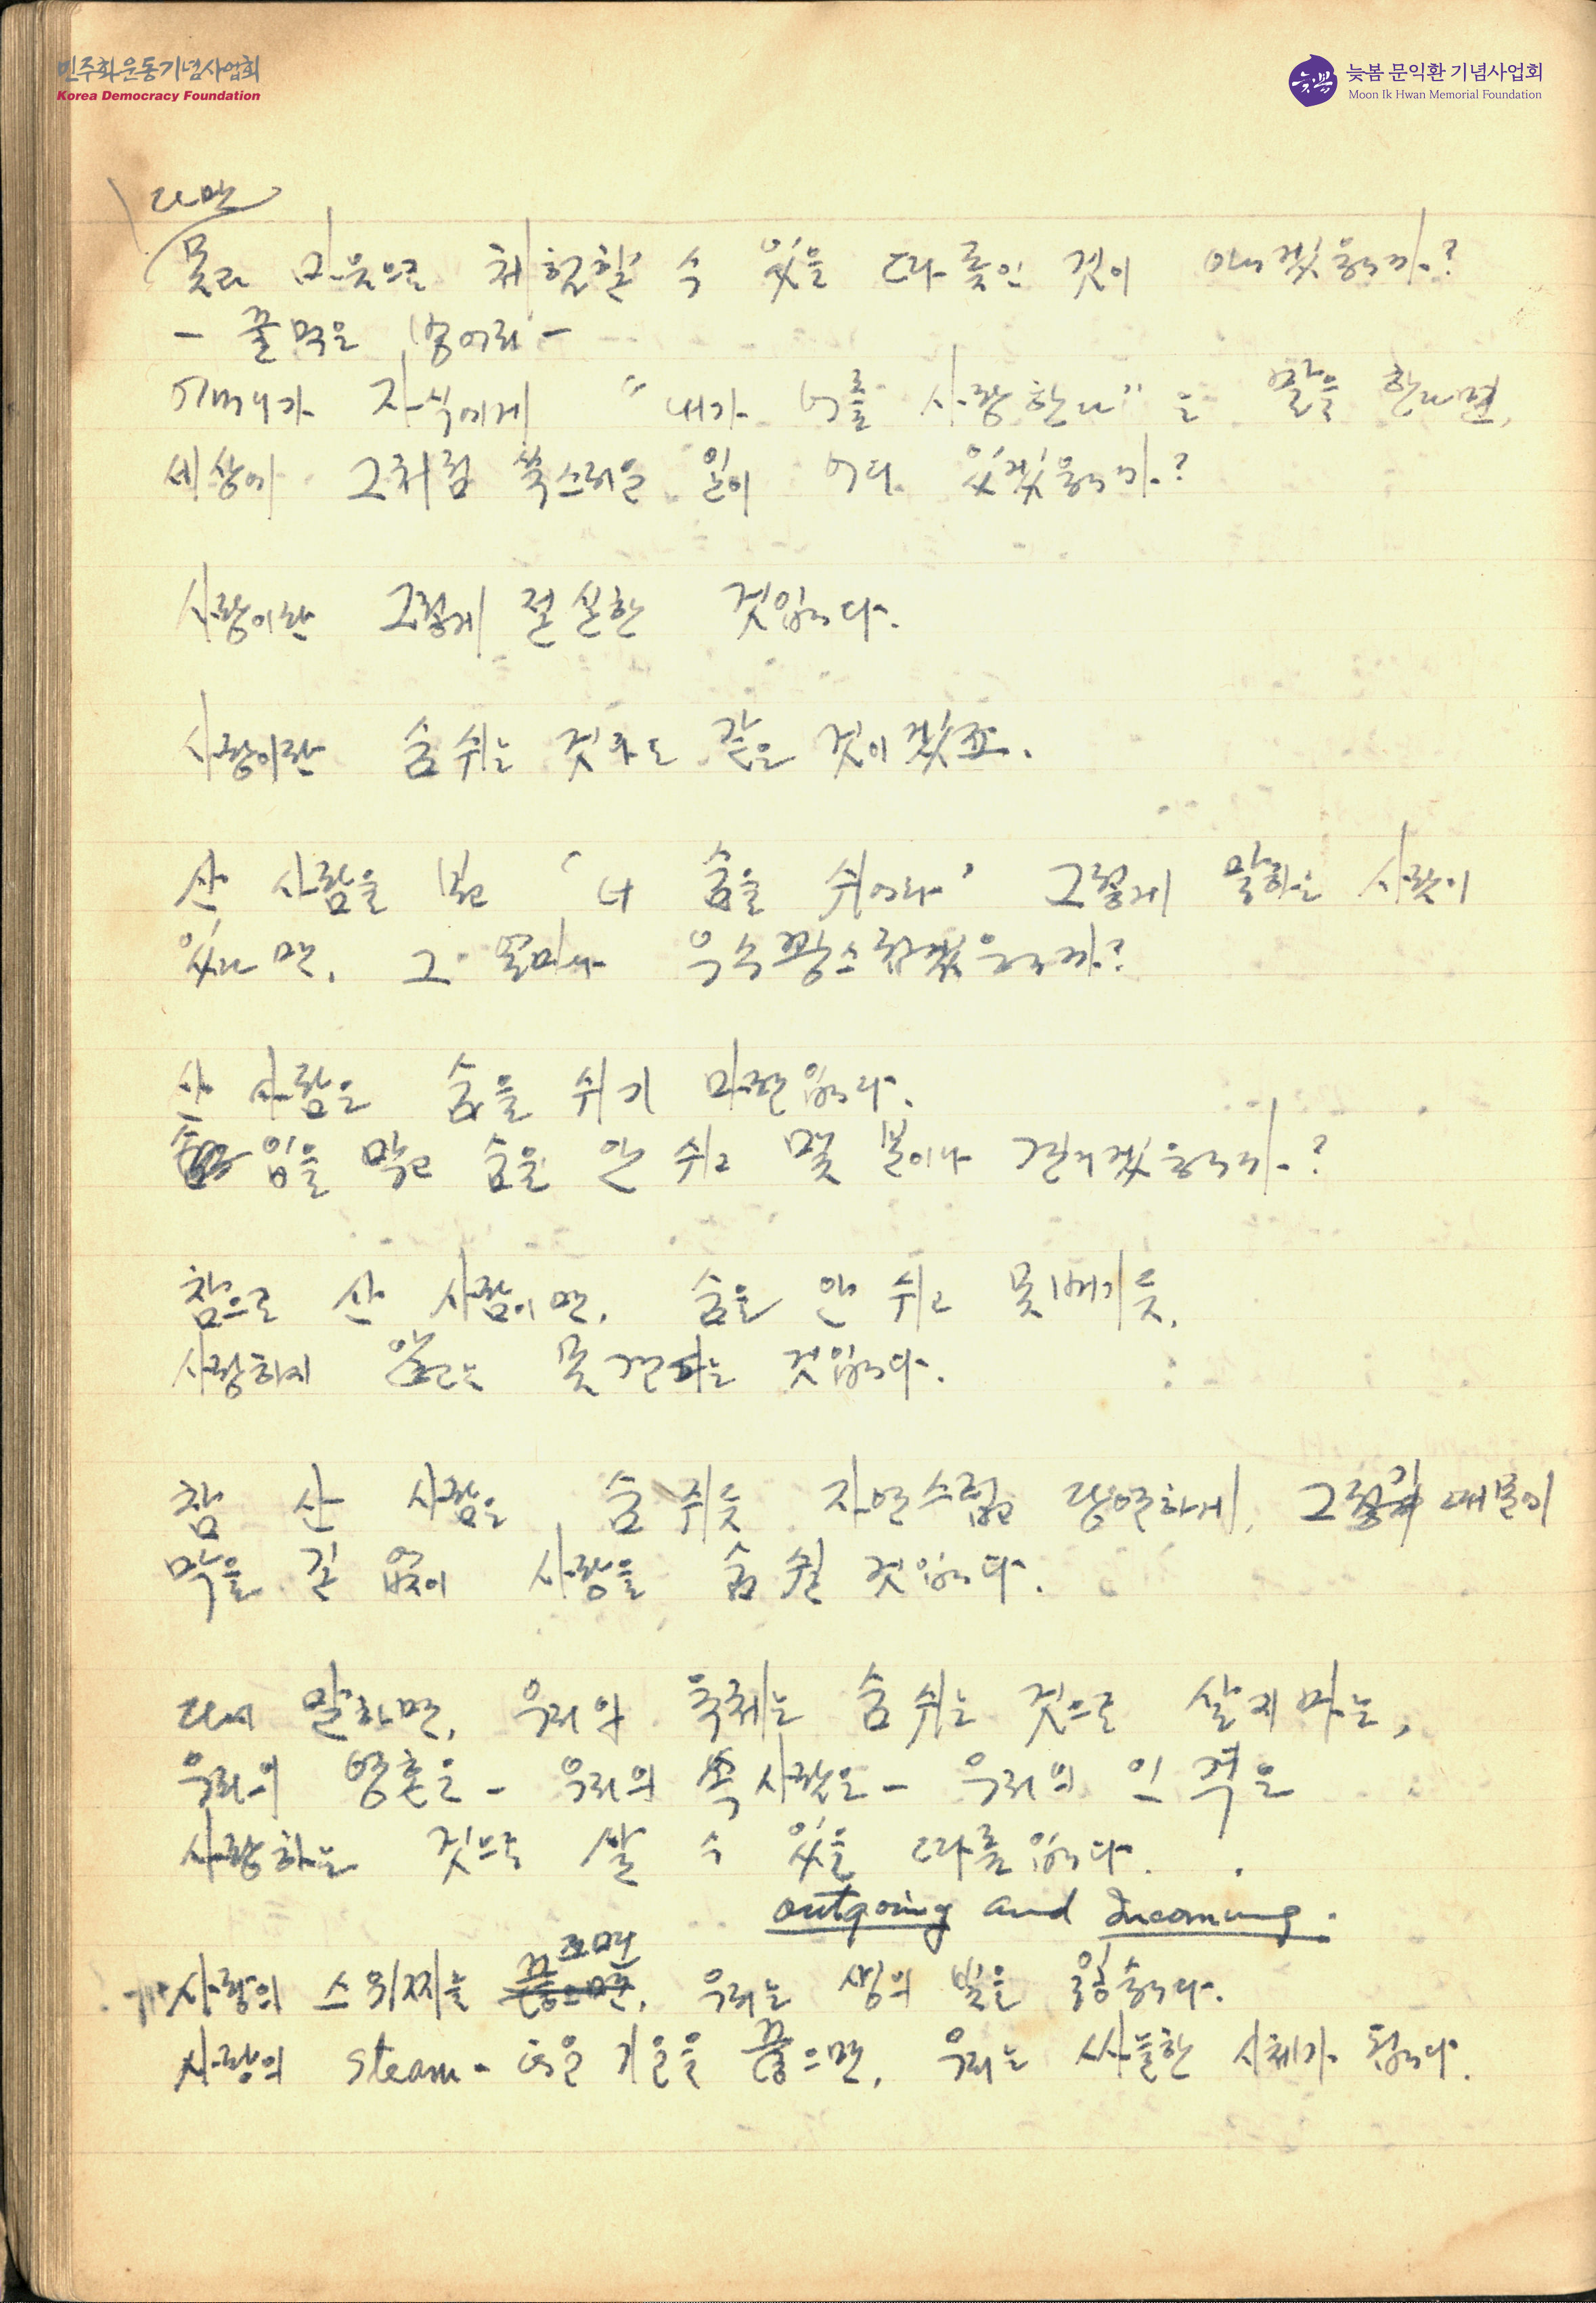 민주화운동기념사업회
Korea Democracy Foundation
늦봄 문익환 기념사업회
Moon Ik Hwan Memorial Foundation
다만
몸과 마음으로 체험할 수 있을 따름인 것이 아니겠읍니까?
- 꿀먹은 벙어리 -
어머니가 자식에게 "내가 너를 사랑한다"는 말을 한다면,
세상에 그처럼 쑥스러운 일이 어디 있겠읍니까?
사랑이란 그렇게 절실한 것입니다.
사랑이란 숨쉬는 것과도 같은 것이겠죠.
산 사람을 보고 '너 숨을 쉬어라' 그렇게 말하는 사람이
있다면, 그 얼마나 우수꽝스럽겠읍니까?
산 사람은 숨을 쉬기 마련입니다.
입을 막고 숨을 안 쉬고 몇 분이나 견디겠읍니까?
참으로 산 사람이면, 숨을 안 쉬고 못 배기듯,
사랑하지 않고는 못 견디는 것입니다.
참 산 사람은 숨쉬듯 자연스럽고 당연하게, 그렇기 때문에
막을 길 없이 사랑을 숨쉴 것입니다.
다시 말하면, 우리의 육체는 숨쉬는 것으로 살지마는,
우리의 영혼은 - 우리의 속사람은 - 우리의 인격은
사랑하는 것으로 살 수 있을 따름입니다.
outgoing and incoming.
끄면
사랑의 스위찌를 끊으면, 우리는 생의 빛을 잃습니다.
사랑의 steam- 같은 기운을 끊으면, 우리는 싸늘한 시체가 됩니다.